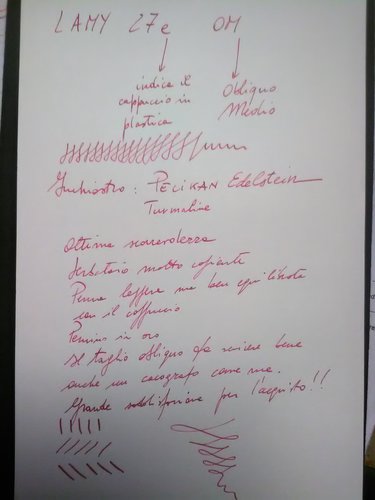 LAMY 27e OM
indica il
cappuccio in
plastica
Obliquo
Medio
Inchiostro : PELIKAN Edelstein
Turmaline
Ottima scorrevolezza
Serbatoio molto capiente
Penna leggera ma ben equilibrata
con il cappuccio
Pennino in oro
Il taglio obliquo fa scrivere bene
anche un cacografo come me.
Grande soddisfazione per l'acquisto!!